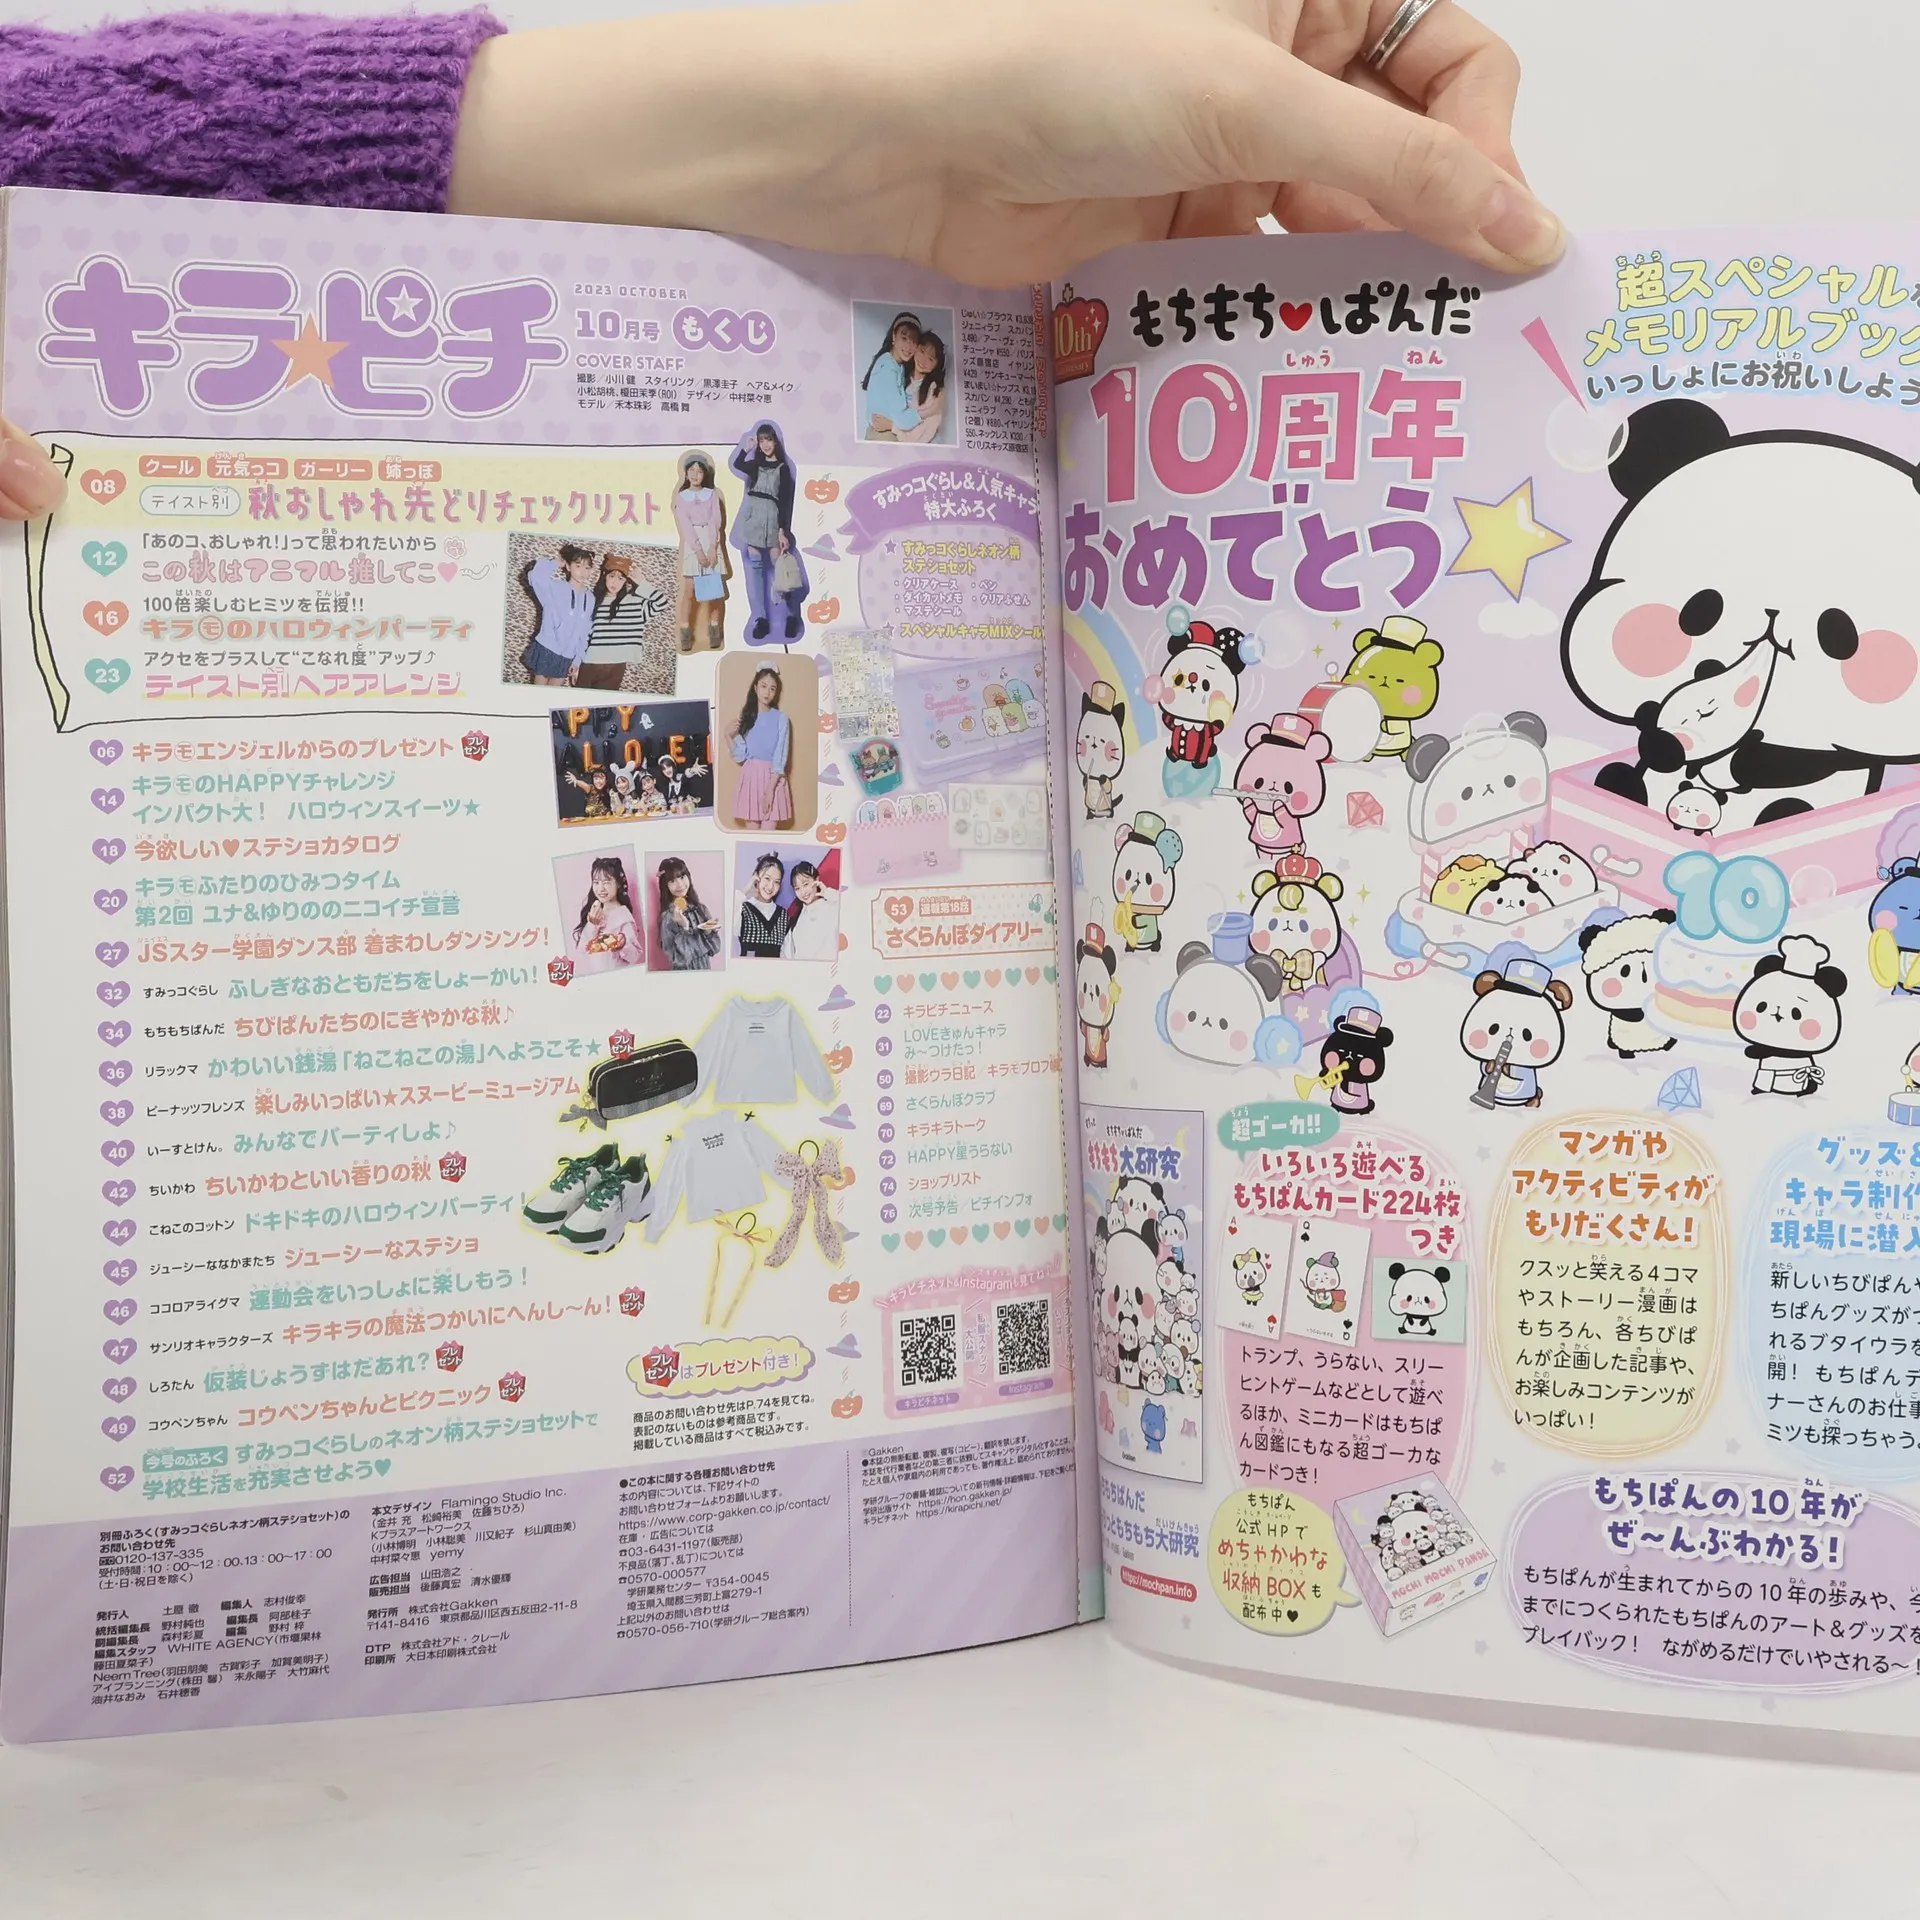 キラ★ピチ
2023 OCTOBER
10月号 もくじ
COVER STAFF
撮影/小川 健 スタイリング/黒澤圭子 ヘア&メイク/
小松胡桃、榎田茉季(ROI) デザイン/中村菜々恵
モデル/禾本珠彩 高橋 舞
08 クール 元気っコ ガーリー 姉っぽ
テイスト別 秋おしゃれ先どりチェックリスト
12 「あのコ、おしゃれ!」って思われたいから
この秋はアニマル推してこ♥
16 100倍楽しむヒミツを伝授!!
キラモのハロウィンパーティ
23 アクセをプラスして“こなれ度”アップ⤴
テイスト別ヘアアレンジ
06 キラモエンジェルからのプレゼント プレゼント
14 キラモのHAPPYチャレンジ
インパクト大! ハロウィンスイーツ★
18 今欲しい♥ステショカタログ
20 キラモふたりのひみつタイム
第2回 ユナ&ゆりののニコイチ宣言
27 JSスター学園ダンス部 着まわしダンシング!
32 すみっコぐらし ふしぎなおともだちをしょーかい! プレゼント
34 もちもちぱんだ ちびぱんたちのにぎやかな秋♪
36 リラックマ かわいい銭湯「ねこねこの湯」へようこそ★ プレゼント
38 ピーナッツフレンズ 楽しみいっぱい★スヌーピーミュージアム
40 いーすとけん。 みんなでパーティしよ♪
42 ちいかわ ちいかわといい香りの秋 プレゼント
44 こねこのコットン ドキドキのハロウィンパーティ!
45 ジューシーななかまたち ジューシーなステショ
46 ココロアライグマ 運動会をいっしょに楽しもう!
47 サンリオキャラクターズ キラキラの魔法つかいにへんし〜ん! プレゼント
48 しろたん 仮装じょうずはだあれ? プレゼント
49 コウペンちゃん コウペンちゃんとピクニック プレゼント
52 今号のふろく すみっコぐらしのネオン柄ステショセットで
学校生活を充実させよう♥
すみっコぐらし&人気キャラ
特大ふろく
★すみっコぐらしネオン柄
ステショセット
・クリアケース ・ペン
・ダイカットメモ ・クリアふせん
・マステシール
★スペシャルキャラMIXシール
53 連載第18話
さくらんぼダイアリー
22 キラピチニュース
31 LOVEきゅんキャラ
み〜つけたっ!
50 撮影ウラ日記/キラモプロフ帳
69 さくらんぼクラブ
70 キラキラトーク
72 HAPPY星うらない
74 ショップリスト
76 次号予告/ピチインフォ
キラピチネット&Instagramも見てね♪
キラピチネット
Instagram
プレゼントはプレゼント付き!
商品のお問い合わせ先はP.74を見てね。
表記のないものは参考商品です。
掲載している商品はすべて税込みです。
別冊ふろく(すみっコぐらしネオン柄ステショセット)の
お問い合わせ先
0120-137-335
受付時間:10:00〜12:00、13:00〜17:00
(土・日・祝日を除く)
発行人 土屋 徹 編集人 志村俊幸
統括編集長 野村純也 編集長 阿部桂子
副編集長 森村彩夏 編集 野村 梓
編集スタッフ WHITE AGENCY(市堰果林
藤田夏菜子)
Neem Tree(羽田朋美 古賀彩子 加賀美明子)
アイプランニング(株田 馨) 末永陽子 大竹麻代
油井なおみ 石井穂香
本文デザイン Flamingo Studio Inc.
(金井 充 松崎裕美 佐藤ちひろ)
Kプラスアートワークス
(小林博明 小林聡美 川又紀子 杉山真由美)
中村菜々恵 yemy
広告担当 山田浩之
販売担当 後藤真宏 清水優輝
発行所 株式会社Gakken
〒141-8416 東京都品川区西五反田2-11-8
DTP 株式会社アド・クレール
印刷所 大日本印刷株式会社
●この本に関する各種お問い合わせ先
本の内容については、下記サイトの
お問い合わせフォームよりお願いします。
https://www.corp-gakken.co.jp/contact/
在庫・広告については
☎03-6431-1197(販売部)
不良品(落丁、乱丁)については
☎0570-000577
学研業務センター 〒354-0045
埼玉県入間郡三芳町上富279-1
上記以外のお問い合わせは
☎0570-056-710(学研グループ総合案内)
©Gakken
●本誌の無断転載、複製、複写(コピー)、翻訳を禁じます。
学研グループの書籍・雑誌についての新刊情報・詳細情報は、下記をご覧くだ
学研出版サイト https://hon.gakken.jp/
キラピチネット https://kirapichi.net/
10th
もちもち♥ぱんだ
10周年
おめでとう
超スペシャル
メモリアルブック
いっしょにお祝いしよう
10
もちもち大研究
超ゴーカ!!
いろいろ遊べる
もちぱんカード224枚
つき
トランプ、うらない、スリー
ヒントゲームなどとして遊べ
るほか、ミニカードはもちぱ
ん図鑑にもなる超ゴーカな
カードつき!
マンガや
アクティビティが
もりだくさん!
クスッと笑える4コマ
やストーリー漫画は
もちろん、各ちびぱ
んが企画した記事や、
お楽しみコンテンツが
いっぱい!
グッズ&
キャラ制作
現場に潜入
新しいちびぱんや
ちぱんグッズがつ
れるブタイウラを
開! もちぱんデ
ナーさんのお仕事
ミツも探っちゃう
https://mochpan.info
もちぱん
公式HPで
めちゃかわな
収納BOXも
配布中♥
MOCHI MOCHI PANDA
もちぱんの10年が
ぜ〜んぶわかる!
もちぱんが生まれてからの10年の歩みや、今
までにつくられたもちぱんのアート&グッズを
プレイバック! ながめるだけでいやされる〜!